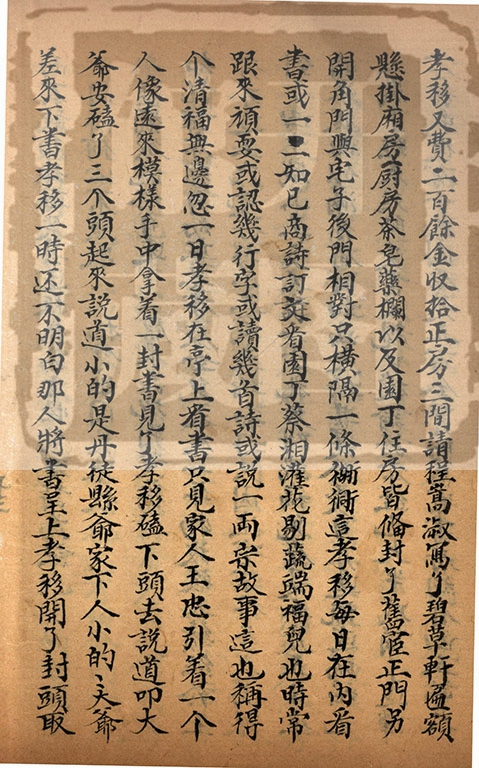 孝移又費二百餘金収拾正房三間請程嵩淑寫了碧草軒匾額
懸掛廂房厨房茶皂藥欄以及園丁住房皆俻封了舊宦正門另
開角門與宅子後門相對只横隔一條衚衕這孝移每日在内看
書或一二知已商詩訂文看園丁蔡湘灌花剔蔬端福兒也時常
跟來頑耍或認幾行字或讀幾首詩或說一兩宗故事這也稱得
个清福無邊忽一日孝移在亭上看書只見家人王忠引着一个
人像遠來模様手中拿着一封書見了孝移磕下頭去說道叩大
爺安磕了三个頭起來說道小的是丹徒縣爺家下人小的〻大爺
差來下書孝移一時还不明白那人將書呈上孝移開了封頭取